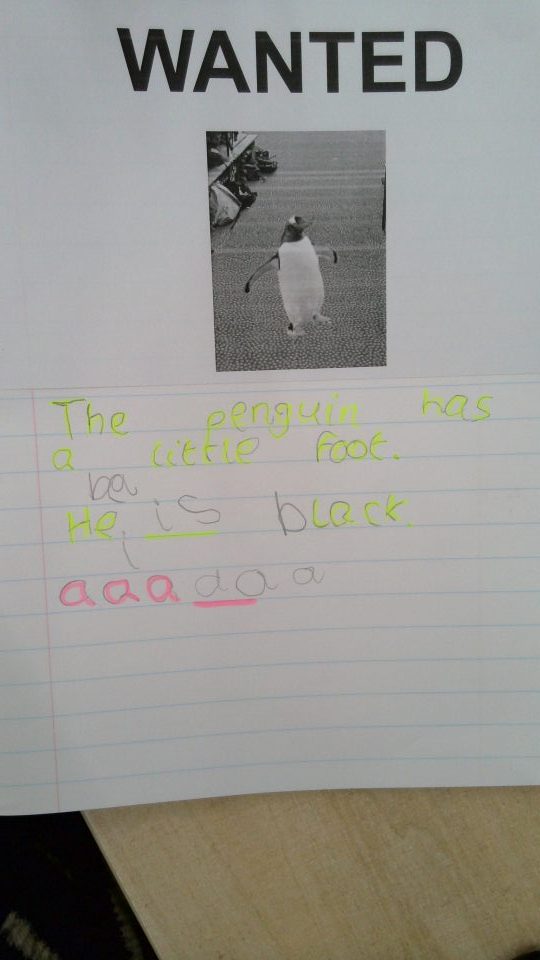 WANTED
The penguin has
a little foot.
ba
He is black.
i
a a a a a a